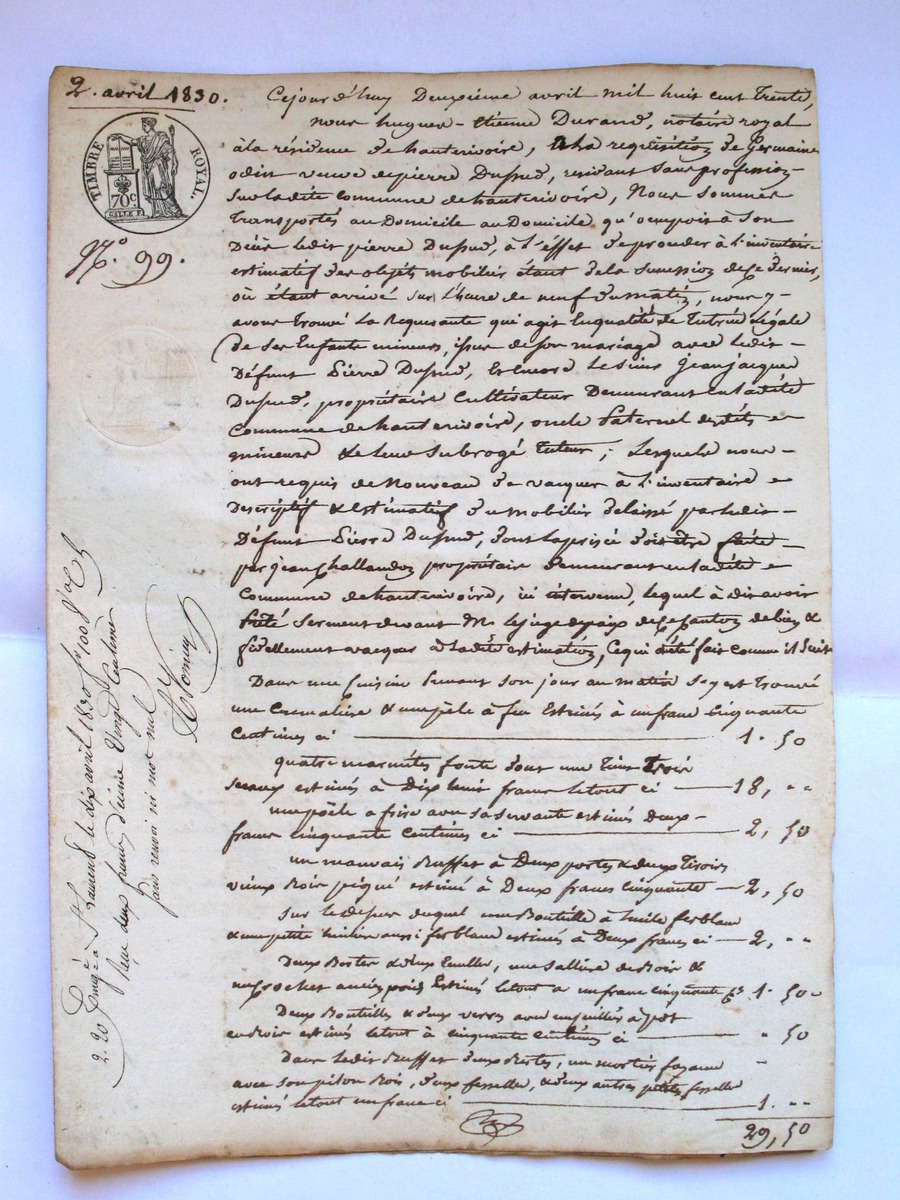 2. avril 1830.
TIMBRE ROYAL.
70c
N.o 99.
Cejourd'huy Deuxième avril mil huit cent Trente,
nous hugues-Etienne Durand, notaire royal
à la résidence de hauterivoire, à la requisition de Germaine
odin veuve de pierre Dupud, residant sans profession
sur la dite commune de hauterivoire, Nous sommes
Transportés au Domicile au Domicile qu'occupoit à son
Décès ledit pierre Dupud, à l'effet de proceder à l'inventaire
estimatif des objets mobiliers étant de la succession de ce dernier,
où étant arrivé sur l'heure de neuf du matin, nous y
avons Trouvé la Requérante qui agit en qualité de Tutrice Légale
de ses Enfants mineurs, issus de son mariage avec ledit
Défunt Pierre Dupud, et encore le sieur Jean jacques
Dupud, propriétaire cultivateur Demeurant en la dite
Commune de hauterivoire, oncle paternel desdits
mineurs & leur subrogé Tuteur; Lesquels nous
ont requis de Nouveau de vaquer à l'inventaire
Descriptif & estimatif du mobilier délaissé par ledit
Défunt Pierre Dupud, dont la prisée doit être faite
par jean Challandon propriétaire demeurant en la dite
Commune de hauterivoire, ici intervenu, lequel a dit avoir
prêté serment devant Mr Le juge de paix de ce canton de bien &
fidellement vacquer à la dite estimation, Ce qui a été fait comme il suit
Dans une Cuisine prenant son jour au matin s'y est Trouvé
une Cremalière & une pèle à feu Estimés à un franc Cinquante
Centimes ci 1. 50
quatre marmites fonte dont une Trois
seaux estimés à Dix huit francs le tout ci 18, ..
une poële a frire avec sa servante estimés deux
francs cinquante Centimes ci 2, 50
un mauvais Buffet à Deux portes & deux Tiroirs
vieux Bois piqué estimé à Deux francs Cinquante 2, 50
Sur le dessus duquel une Bouteille à huile ferblanc
& une petite aussi ferblanc estimés à Deux francs ci 2, ..
Deux & deux, une Salliere de Bois &
un crochet ancien poids Estimés le tout a un franc cinquante cs 1. 50
Deux Bouteilles & deux verres avec
en Bois estimés le tout à cinquante centimes ci " 50
Dans ledit Buffet deux, un mortier
avec son pilon Bois, deux faisselles, & deux autres petites faisselles
estimés le tout un franc ci 1. ..
29, 50
2. 20 Enregistré à St Laurent le dix avril 1830 fo 100
Reçu deux francs décime Vingt Centimes
sans renvoi ni mot nul